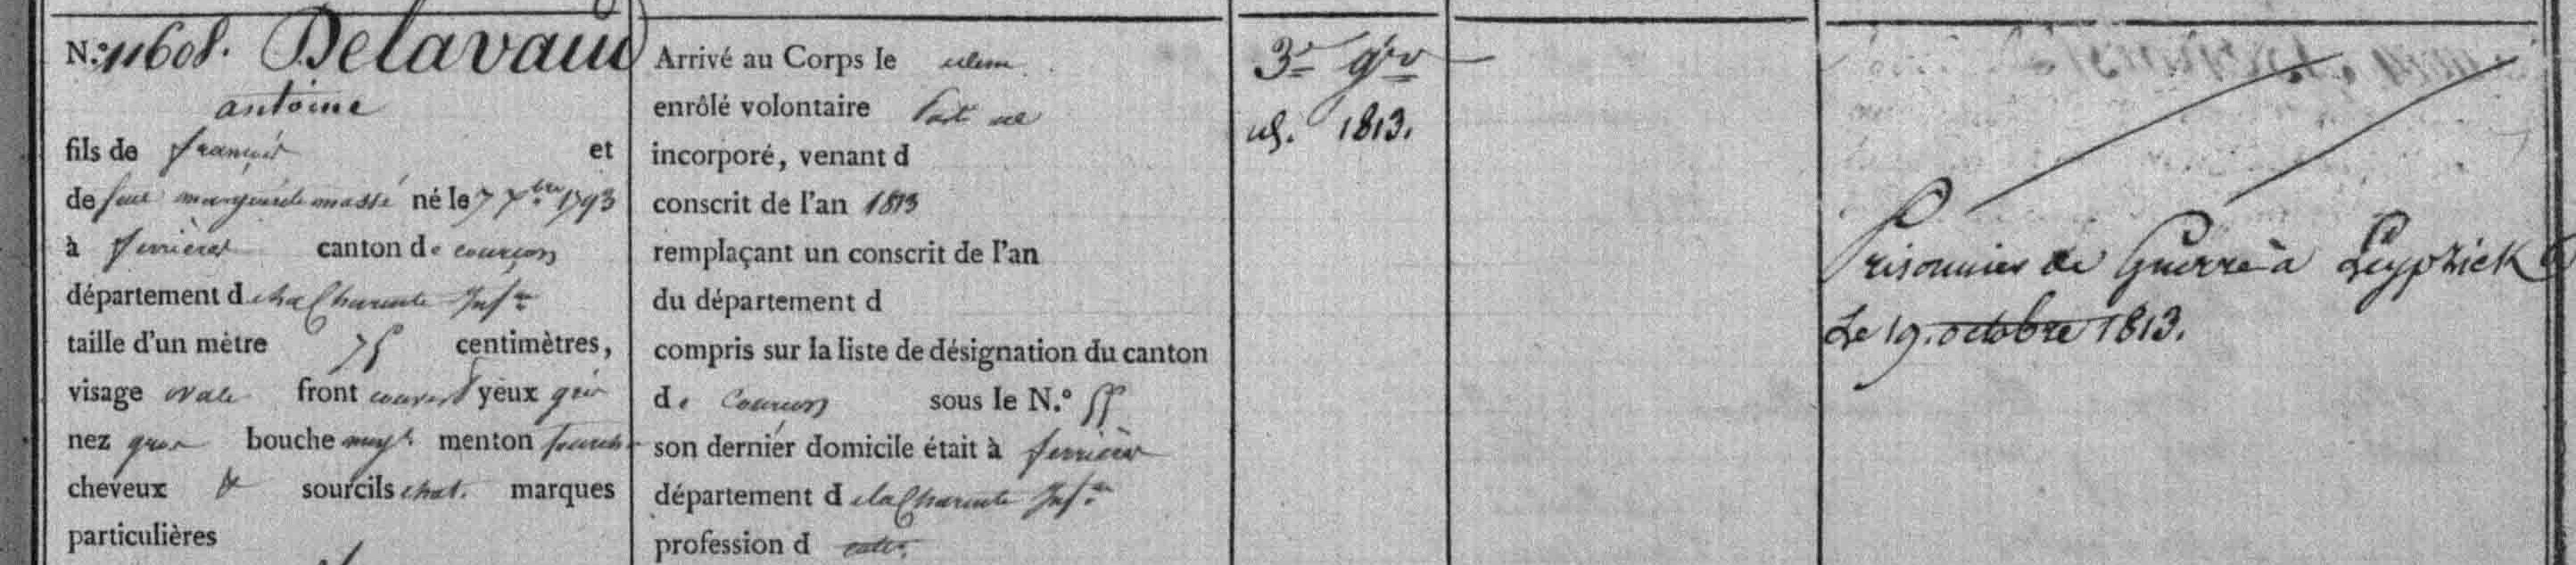 N.° 11608. Delavaud
antoine
fils de françois et
de feue marguerite massé né le 7 7.bre 1793
à ferrières canton de courçon
département de la Charente Inf.re
taille d'un mètre 75 centimètres,
visage ovale front couvert yeux gris
nez gros bouche moy.e menton fourch
cheveux & sourcils chat. marques
particulières
Arrivé au Corps le idem
enrôlé volontaire
incorporé, venant d
conscrit de l'an 1813
remplaçant un conscrit de l'an
du département d
compris sur la liste de désignation du canton
de Courçon sous le N.°
son dernier domicile était à ferrières
département de la Charente Inf.re
profession d
1813.
Prisonnier de Guerre à Leypzick
Le 19. octobre 1813.